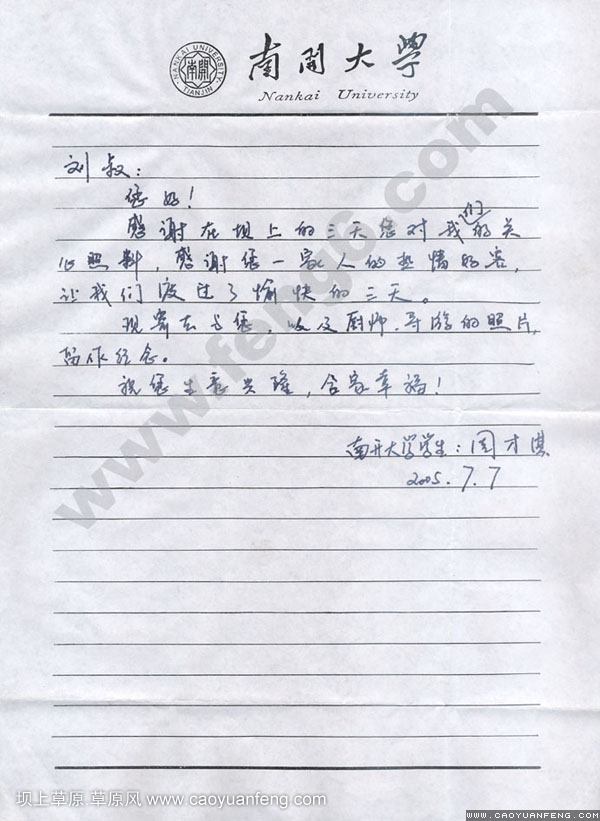 NANKAI UNIVERSITY
南開
TIANJIN
南開大學
Nankai University
刘叔：
您好！
感谢在坝上的三天您对我们的关
心照料，感谢您一家人的热情好客，
让我们渡过了愉快的三天。
现寄去与您，以及厨师、导游的照片，
留作纪念。
祝您生意兴隆，合家幸福！
南开大学学生：周才淇
2005.7.7
www.feng6.com
坝上草原 草原风 www.caoyuanfeng.com/
WWW.CAOYUANFENG.COM